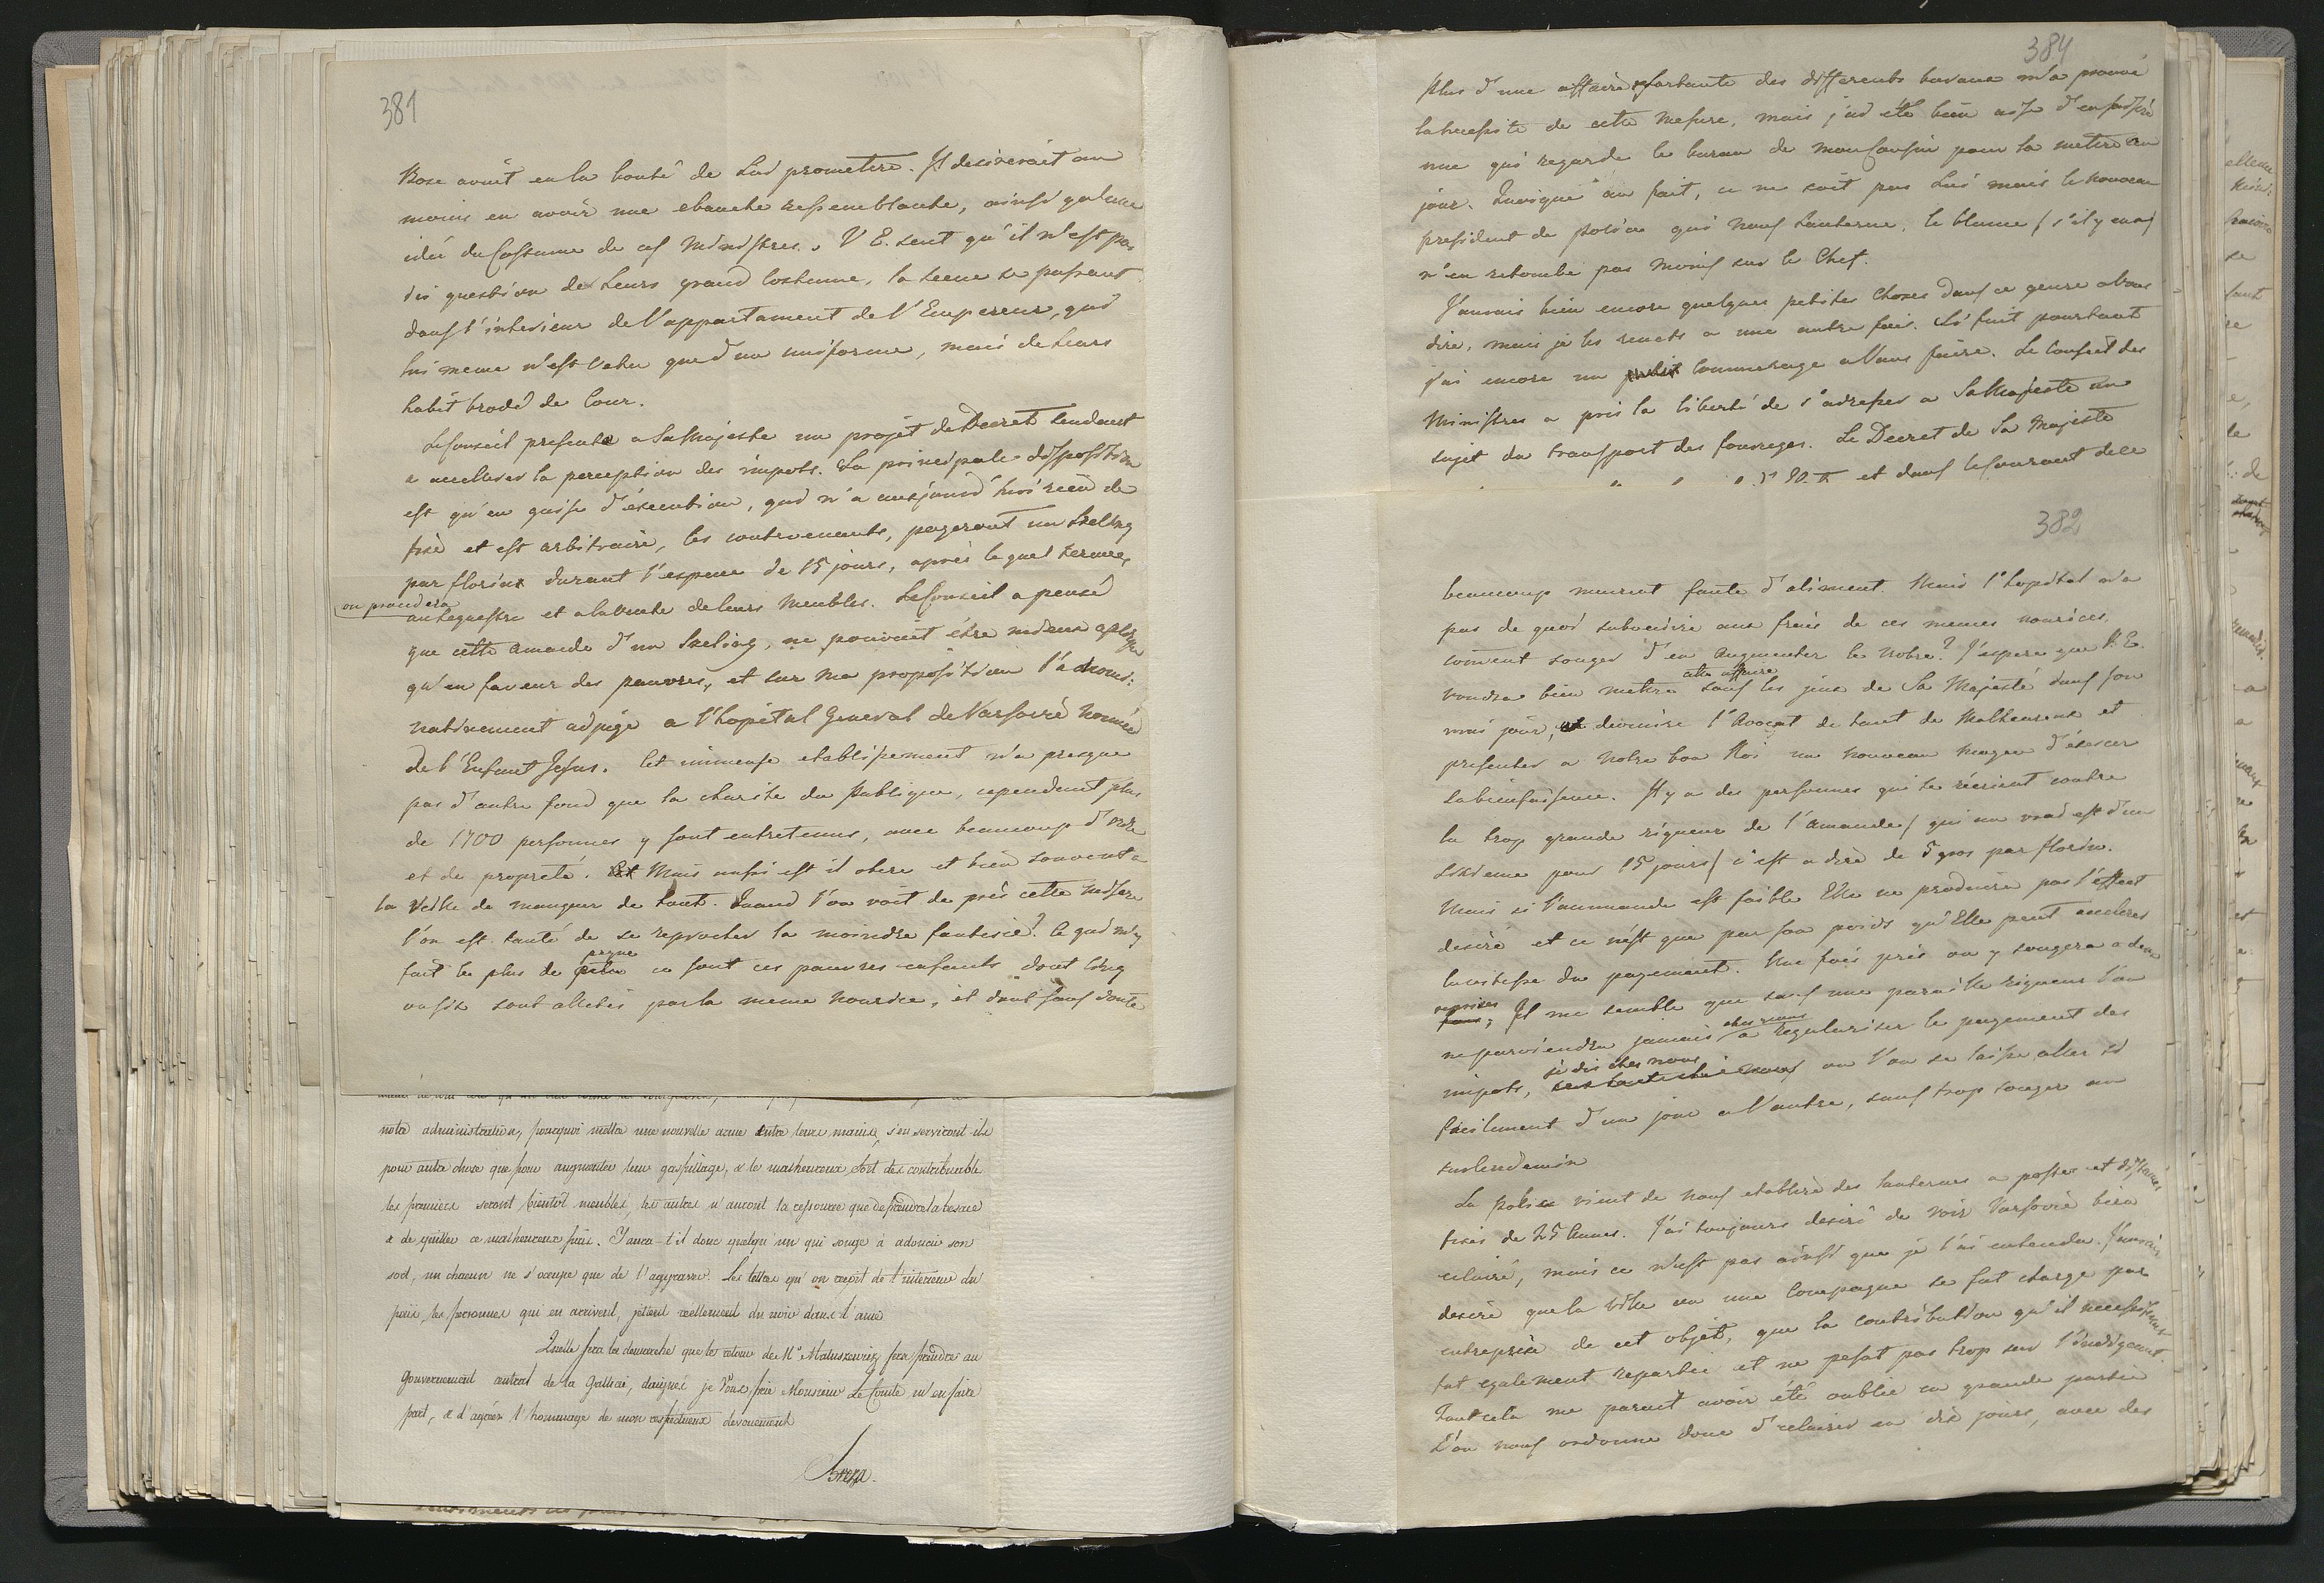 381
Bose avait eu la bonté de Lui prometre. Il desirerait au
moins en avoir une ebauche ressemblante, ainsi qu'une
idée du Costume de ces Ministres. V E. sent qu'il n'est pas
di question de Leurs grand Costume, la scene se passant
dans l'interieur de l'appartament de l'Empereur, qui
lui meme n'est vetu que d'un uniforme, mais de Leurs
habit brodé de Cour.
Le Conseil presente a Sa Majeste un projet de Decret tendant
a accellerer la perception des impots. La principale disposition
est qu'en guise d'éxecution, qui n'a aujourd'hui rien de
fixè et est arbitraire, les contrevenants, payeront un Szelong
par florins durant l'espace de 15 jours, après lequel terme,
on procedera
au sequestre et a la vente de leurs Meubles. Le Conseil a pensé
que cette amande d'un Szelong, ne pouvait être mieux apliqué
qu'en faveur des pauvres, et sur ma proposition l'a
adjugé a l'hopital General de Varsovie nommé
de l'Enfant Jesus. Cet immense etablissement n'a presque
pas d'autre fond que la charité du Publique, cependant plus
de 1700 personnes y sont entretenus, avec beaucoup d'ordre
et de propreté. Mais aussi est il obere et bien souvent a
la veille de manquer de tout. Quand l'on voit de près cette misere
l'on est tanté de se reprocher la moindre fantesie. Ce qui m'y
peyne
fait le plus de ce sont ces pauvres enfants dont cinq
ou six sont alletés par la meme nourice, et dont sans doute
notre administration, pourquoi mettre une nouvelle arme entre leurs mains, s'en serviront-ils
pour autre chose que pour augmenter leur gaspillage, & le malheureux sort des contribuable
les premiers seront bientôt meublés, les autres n'auront la ressource que de prendre la besace
& de quitter ce malheureux païs. Y aura-t'il donc quelqu'un qui songe à adoucir son
sort, un chacun ne s'occupe que de l'aggraver. Les lettres qu'on reçoit de l'interieur du
païs, les personnes qui en arrivent, jettent reellement du noir dans l'ame
Quelle sera la demarche que le retour de Mr. Matuszewicz fera prendre au
Gouvernement central de la Gallicie, daignez je Vous prie Monsieur Le Comte m'en faire
part, & d'agréer l'hommage de mon respectueux devouement
Breza.
384
Plus d'une affaire des differents bureaux m'a prouvé
la necessite de cette mesure, mais j'ai été bien aise d'en saisir
une qui regarde le bureau de mon Cousin pour la mettre au
jour. Quoique au fait, ce ne soit pas Lui mais le nouveau
president de police qui nous lanterne, le blame (s'il y en a)
n'en retombe pas moins sur le Chef.
J'aurais bien encore quelques petites choses dans ce genre a Vous
dire, mais je les remets a une autre fois. Si fait pourtant
j'ai encore un commerage a Vous faire. Le Conseil des
Ministres a pris la liberté de s'adresser a Sa Majesté au
sujet du transport des fourages. Le Decret de Sa Majesté
et dans le courant de ce
382
beaucoup meurent faute d'aliment. Mais l'hopital n'a
pas de quoi subvenire aux frais de ces memes nourices,
coment songer d'en augmenter le nobre? J'espere que V. E.
cette affaire
voudra bien mettre sous les yeux de Sa Majesté dans son
vrai jour, devenire l'Avocat de tant de Malheureux et
presenter a notre bon Roi un nouveau moyen d'éxercer
sa bienfaisance. Il y a des personnes qui se récrient contre
la trop grande rigueur de l'amande (qui au vrai est d'un
sixieme pour 15 jours) c'est a dire de 5 gros par florin.
Mais si l'ammande est faible Elle ne produira pas l'effect
desiré et ce n'est que par son poids qu'Elle peut accelerer
la vitesse du payement. Une fois pris on y songera a deux
reprises; Il me semble que sans une pareille rigueur l'on
chez nous
ne parviendra jamais a regulariser le payement des
je dis chez nous
impots, ou l'on se laisse aller si
facilement d'un jour a l'autre, sans trop songer au
surlendemain
La police vient de nous etablire des lanternes a postes et distances
fixes de 25 aunes. J'ai toujours desiré de voir Varsovie bien
eclairé, mais ce n'est pas ainsi que je l'ai entendu. J'aurais
desiré que la ville ou une Compagne se fut charge par
entreprise de cet objet, que la contribution qu'il necessiterait
fut egalement repartie et ne pesat pas trop sur l'indigeant.
Tout cela me parait avoir été oublié en grande partie
L'on nous ordonne donc d'eclairer en dix jours, avec des